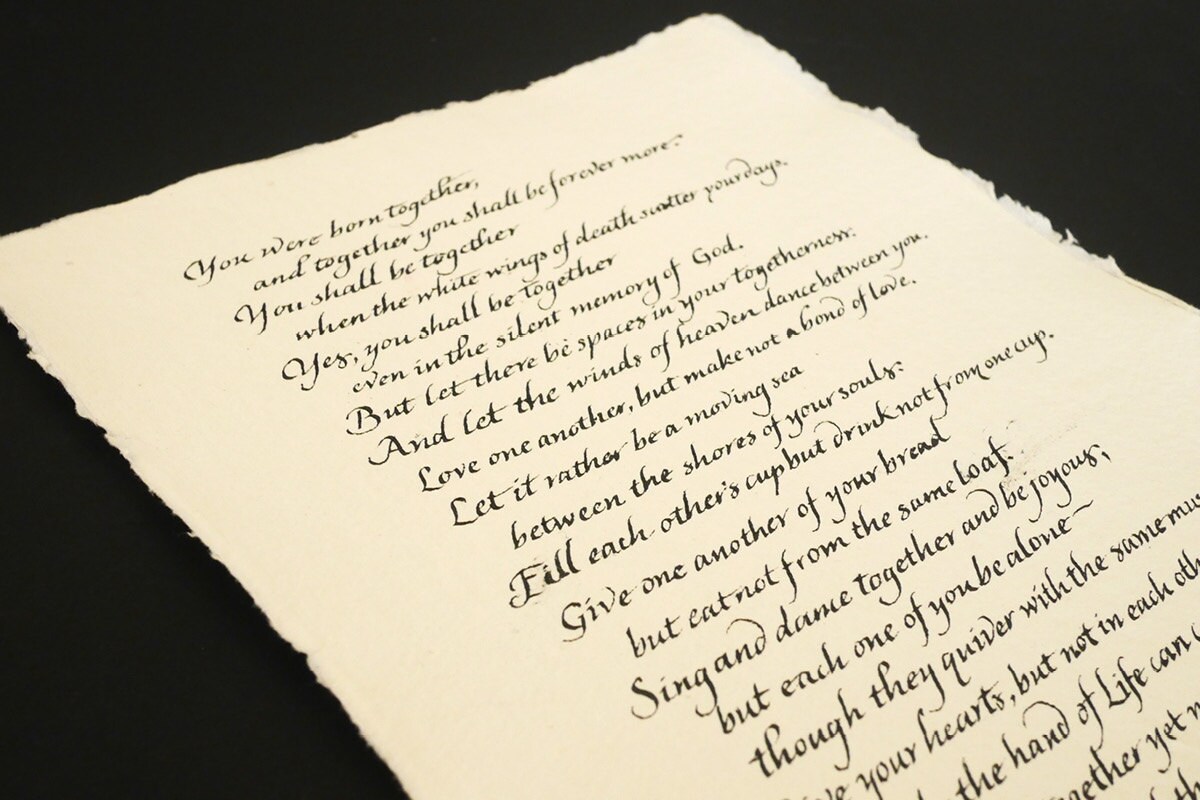 You were born together,
and together you shall be forever more.
You shall be together
when the white wings of death scatter your days.
Yes, you shall be together
even in the silent memory of God.
But let there be spaces in your togetherness.
And let the winds of heaven dance between you.
Love one another, but make not a bond of love.
Let it rather be a moving sea
between the shores of your souls.
Fill each other's cup but drink not from one cup.
Give one another of your bread
but eat not from the same loaf.
Sing and dance together and be joyous,
but each one of you be alone—
though they quiver with the same
your hearts, but not in each
the hand of Life can
together yet